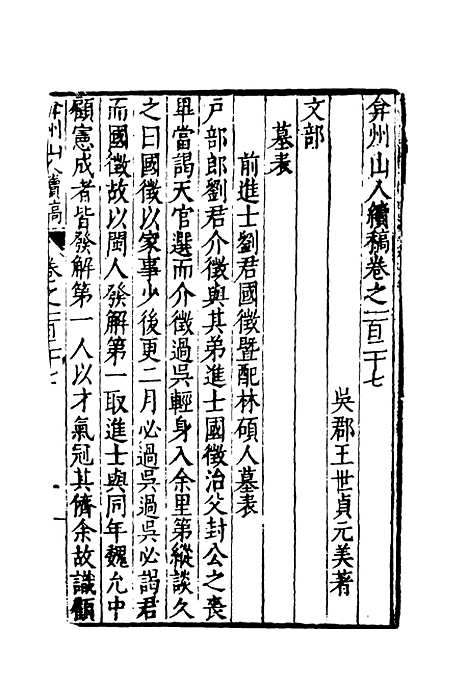 弇州山人續稿卷之一百二十七
吳郡王世貞元美著
文部
墓表
前進士劉君國徵暨配林碩人墓表
戶部郎劉君介徵與其弟進士國徵治父封公之喪
畢當謁天官選而介徵過吳輕身入余里第縱談久
之曰國徵以家事少後更二月必過吳過吳必謁君
而國徵故以閩人發解第一取進士與同年魏允中
顧憲成者皆發解第一人以才氣冠其儕余故識顧
弇州山人續稿 卷之一百二十七 一